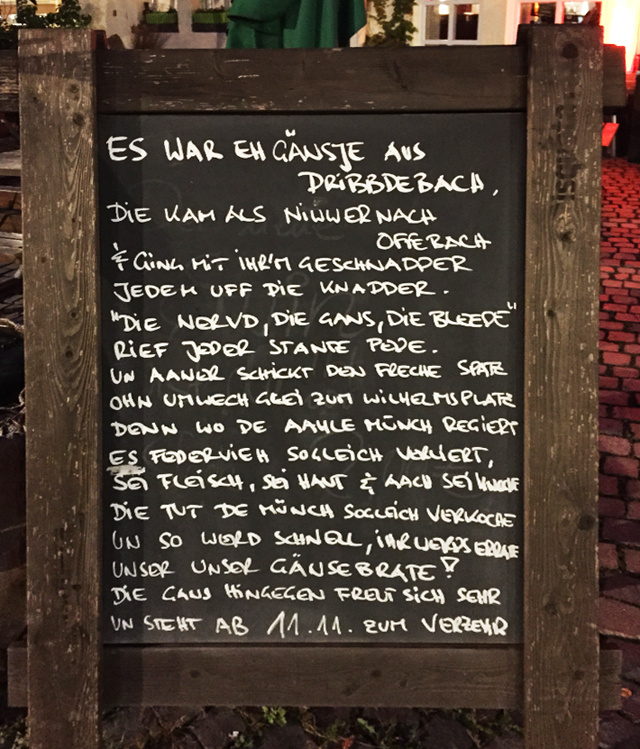 ES WAR EH GÄNSJE AUS
DRIBBDEBACH,
DIE KAM ALS NIWWER NACH
OFFEBACH
& GING MIT IHR'M GESCHNADPER
JEDEM UFF DIE KNADDER.
"DIE NERVD, DIE GANS, DIE BLEEDE"
RIEF JEDER STANTE PEDE.
UN AANER SCHICKT DEN FRECHE SPATZ
OHN UMWECH GLEI ZUM WILHELMSPLATZ
DENN WO DE AAHLE MÜNCH REGIERT
ES FEDERVIEH SOGLEICH VERLIERT,
SEI FLEISCH, SEI HAUT & AACH SEI KNOCHE
DIE TUT DE MÜNCH SOGLEICH VERKOCHE
UN SO WERD SCHNELL, IHR WERD'S ERRATE
UNSER UNSER GÄNSEBRATE!
DIE GANS HINGEGEN FREUT SICH SEHR
UN STEHT AB 11.11. ZUM VERZEHR